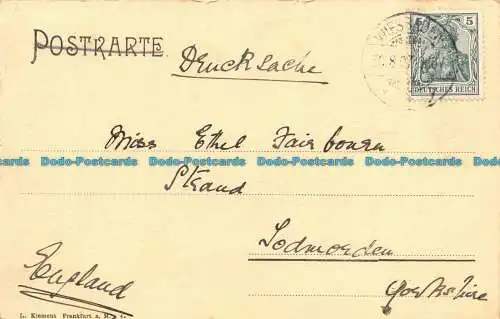 POSTKARTE.
Drucksache
5 5
DEUTSCHES REICH
Miss Ethel Fairbourn
Dodo-Postcards Dodo-Postcards Dodo-Postcards Dodo-Postcards
Strand
Todmorden
Yorkshire
England
L. Klement Frankfurt a. M.